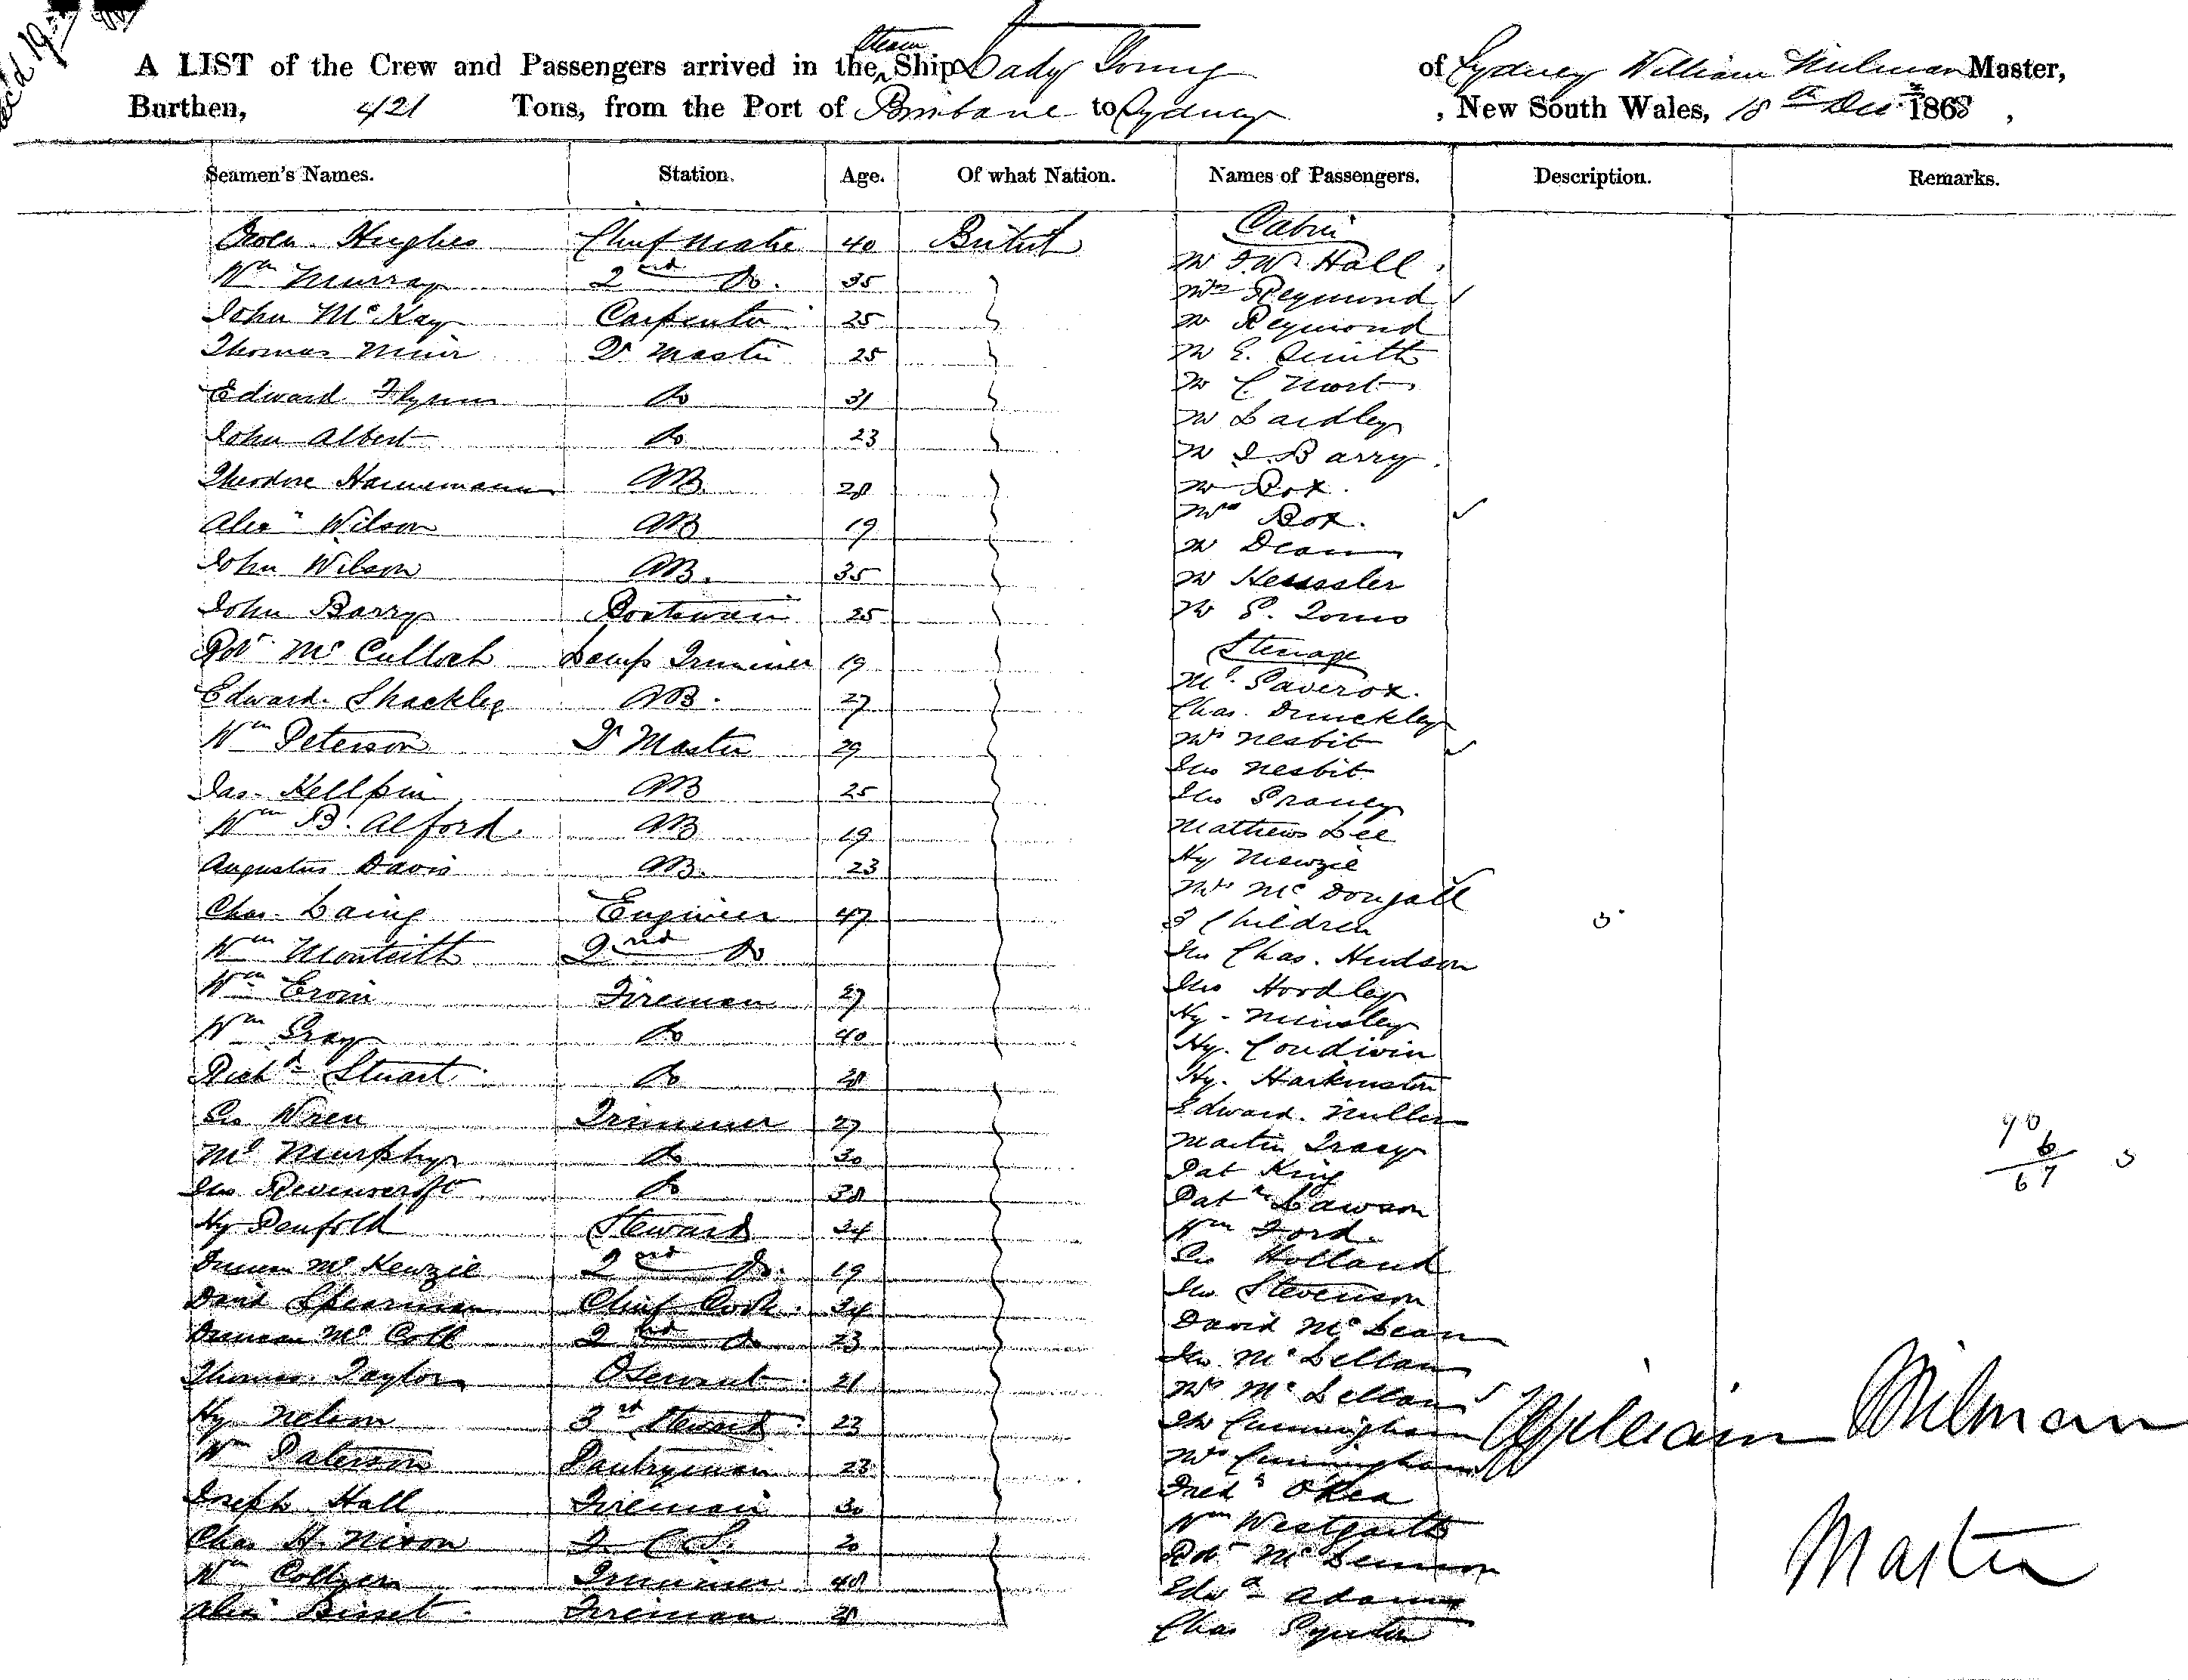 A LIST of the Crew and Passengers arrived in the Steam Ship Lady Young of Sydney William Milman Master,
Burthen, 421 Tons, from the Port of Brisbane to Sydney, New South Wales, 18th Decr 1868,
Seamen's Names. Station. Age. Of what Nation. Names of Passengers. Description. Remarks.
Owen Hughes Chief Mate 40 British
Wm Murray 2nd Do. 35
John McKay Carpenter 25
Thomas Muir Qr Master 25
Edward Flynn Do 31
John Albert Do 23
Theodore Hannemann AB. 28
Alexr Wilson AB 19
John Wilson AB. 35
John Barry Boatswain 25
Robt McCulloch Lamp Trimmer 19
Edward Shackley AB. 27
Wm Peterson Qr Master 29
Jas. Kellpin AB 25
Wm B. Alford. AB 19
Augustus Davis AB. 23
Chas. Laing Engineer 47
Wm Monteith 2nd Do
Wm Fireman 27
Wm Gray Do 40
Richd Stuart Do 28
Geo Wren Trimmer 27
Ml Murphy Do 30
Jno Do 38
Hy Penfold Steward 34
Duncan McKenzie 2nd Do. 19
David Spearman Chief Cook. 34
Duncan McColl 2nd Do 23
Thomas Taylor 21
Hy Nelson 3rd Steward 23
Wm Paterson Pantryman 23
Joseph Hall Fireman 30
Chas H. Nixon 20
Wm Collyer Trimmer 48
Alexr Bisset Fireman 28
Cabin
Mr F.W. Hall
Mrs Reymond
Mr Reymond
Mr E. Smith
Mr C Mort
Mr Lardley
Mr J. Barry.
Mr Box.
Mrs Box.
Mr Dean
Mr Heussler
Mr
Steerage
Ml.
Chas.
Mrs Nesbit
Jno Nesbit
Jno
Mathew Lee
Hy
Mrs McDougall
3 Children 3
Jno Chas. Hudson
Jno Hordley
Hy.
Hy.
Hy.
Edward.
Martin Tracy
Pat King
Patk Lawson
Wm Ford
Geo Holland
Jno Stevenson
David McLean
Jno. McLellan
Mrs McLellan
Jno Cunningham
Mrs Cunningham
Fredk O'Rea
Wm Westgarth
Robt
Edwd Adams
Chas
6
67 3
William Milman
Master